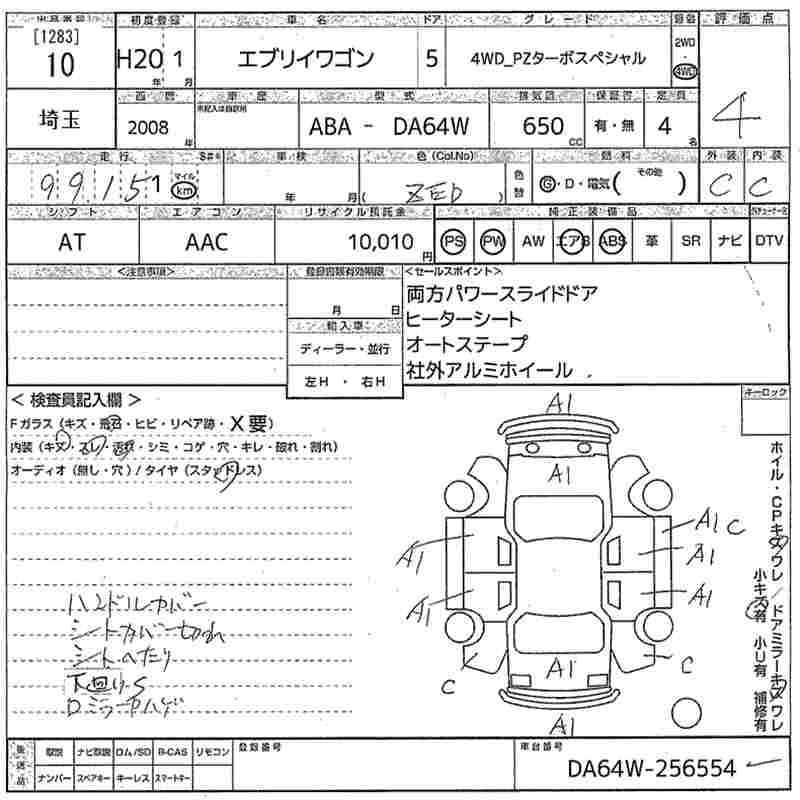 [1283]
10
初度登録
車名
ドア
グレード
評価点
H20 1
年 月
エブリイワゴン
5
4WD_PZターボスペシャル
2WD
4WD
4
埼玉
西暦
型式
排気量
保証書
定員
2008 年
ABA - DA64W
650 cc
有・無
4 名
走行
S#
車検
色(Col.No)
燃料
外装
内装
99,151
マイル
km
年 月
( ZED )
色替
G・D・電気( その他 )
C
C
シフト
エアコン
リサイクル預託金
純正装備品
AT
AAC
10,010 円
PS
PW
AW
エアB
ABS
革
SR
ナビ
DTV
<注意事項>
登録書類有効期限
月 日
輸入車
ディーラー・並行
左H ・ 右H
<セールスポイント>
両方パワースライドドア
ヒーターシート
オートステープ
社外アルミホイール
< 検査員記入欄 >
Fガラス (キズ・飛石・ヒビ・リペア跡・X要)
内装 (キズ・スレ・汚れ・シミ・コゲ・穴・キレ・破れ・割れ)
オーディオ (無し・穴) / タイヤ (スタッドレス)
キーロック
A1
A1
A1 C
A1
A1
A1
A1
A1
C
C
A1
ホイル・CPキズワレ / ドアミラーキズワレ
小キズ有 小U有 補修有
ハンドルカバー
シートカバー切れ
シートへたり
下回りS
Dミラーカハゲ
後送品
取説
ナビ取説
ロム/SD
B-CAS
リモコン
ナンバー
スペアキー
キーレス
スマートキー
登録番号
車台番号
DA64W-256554